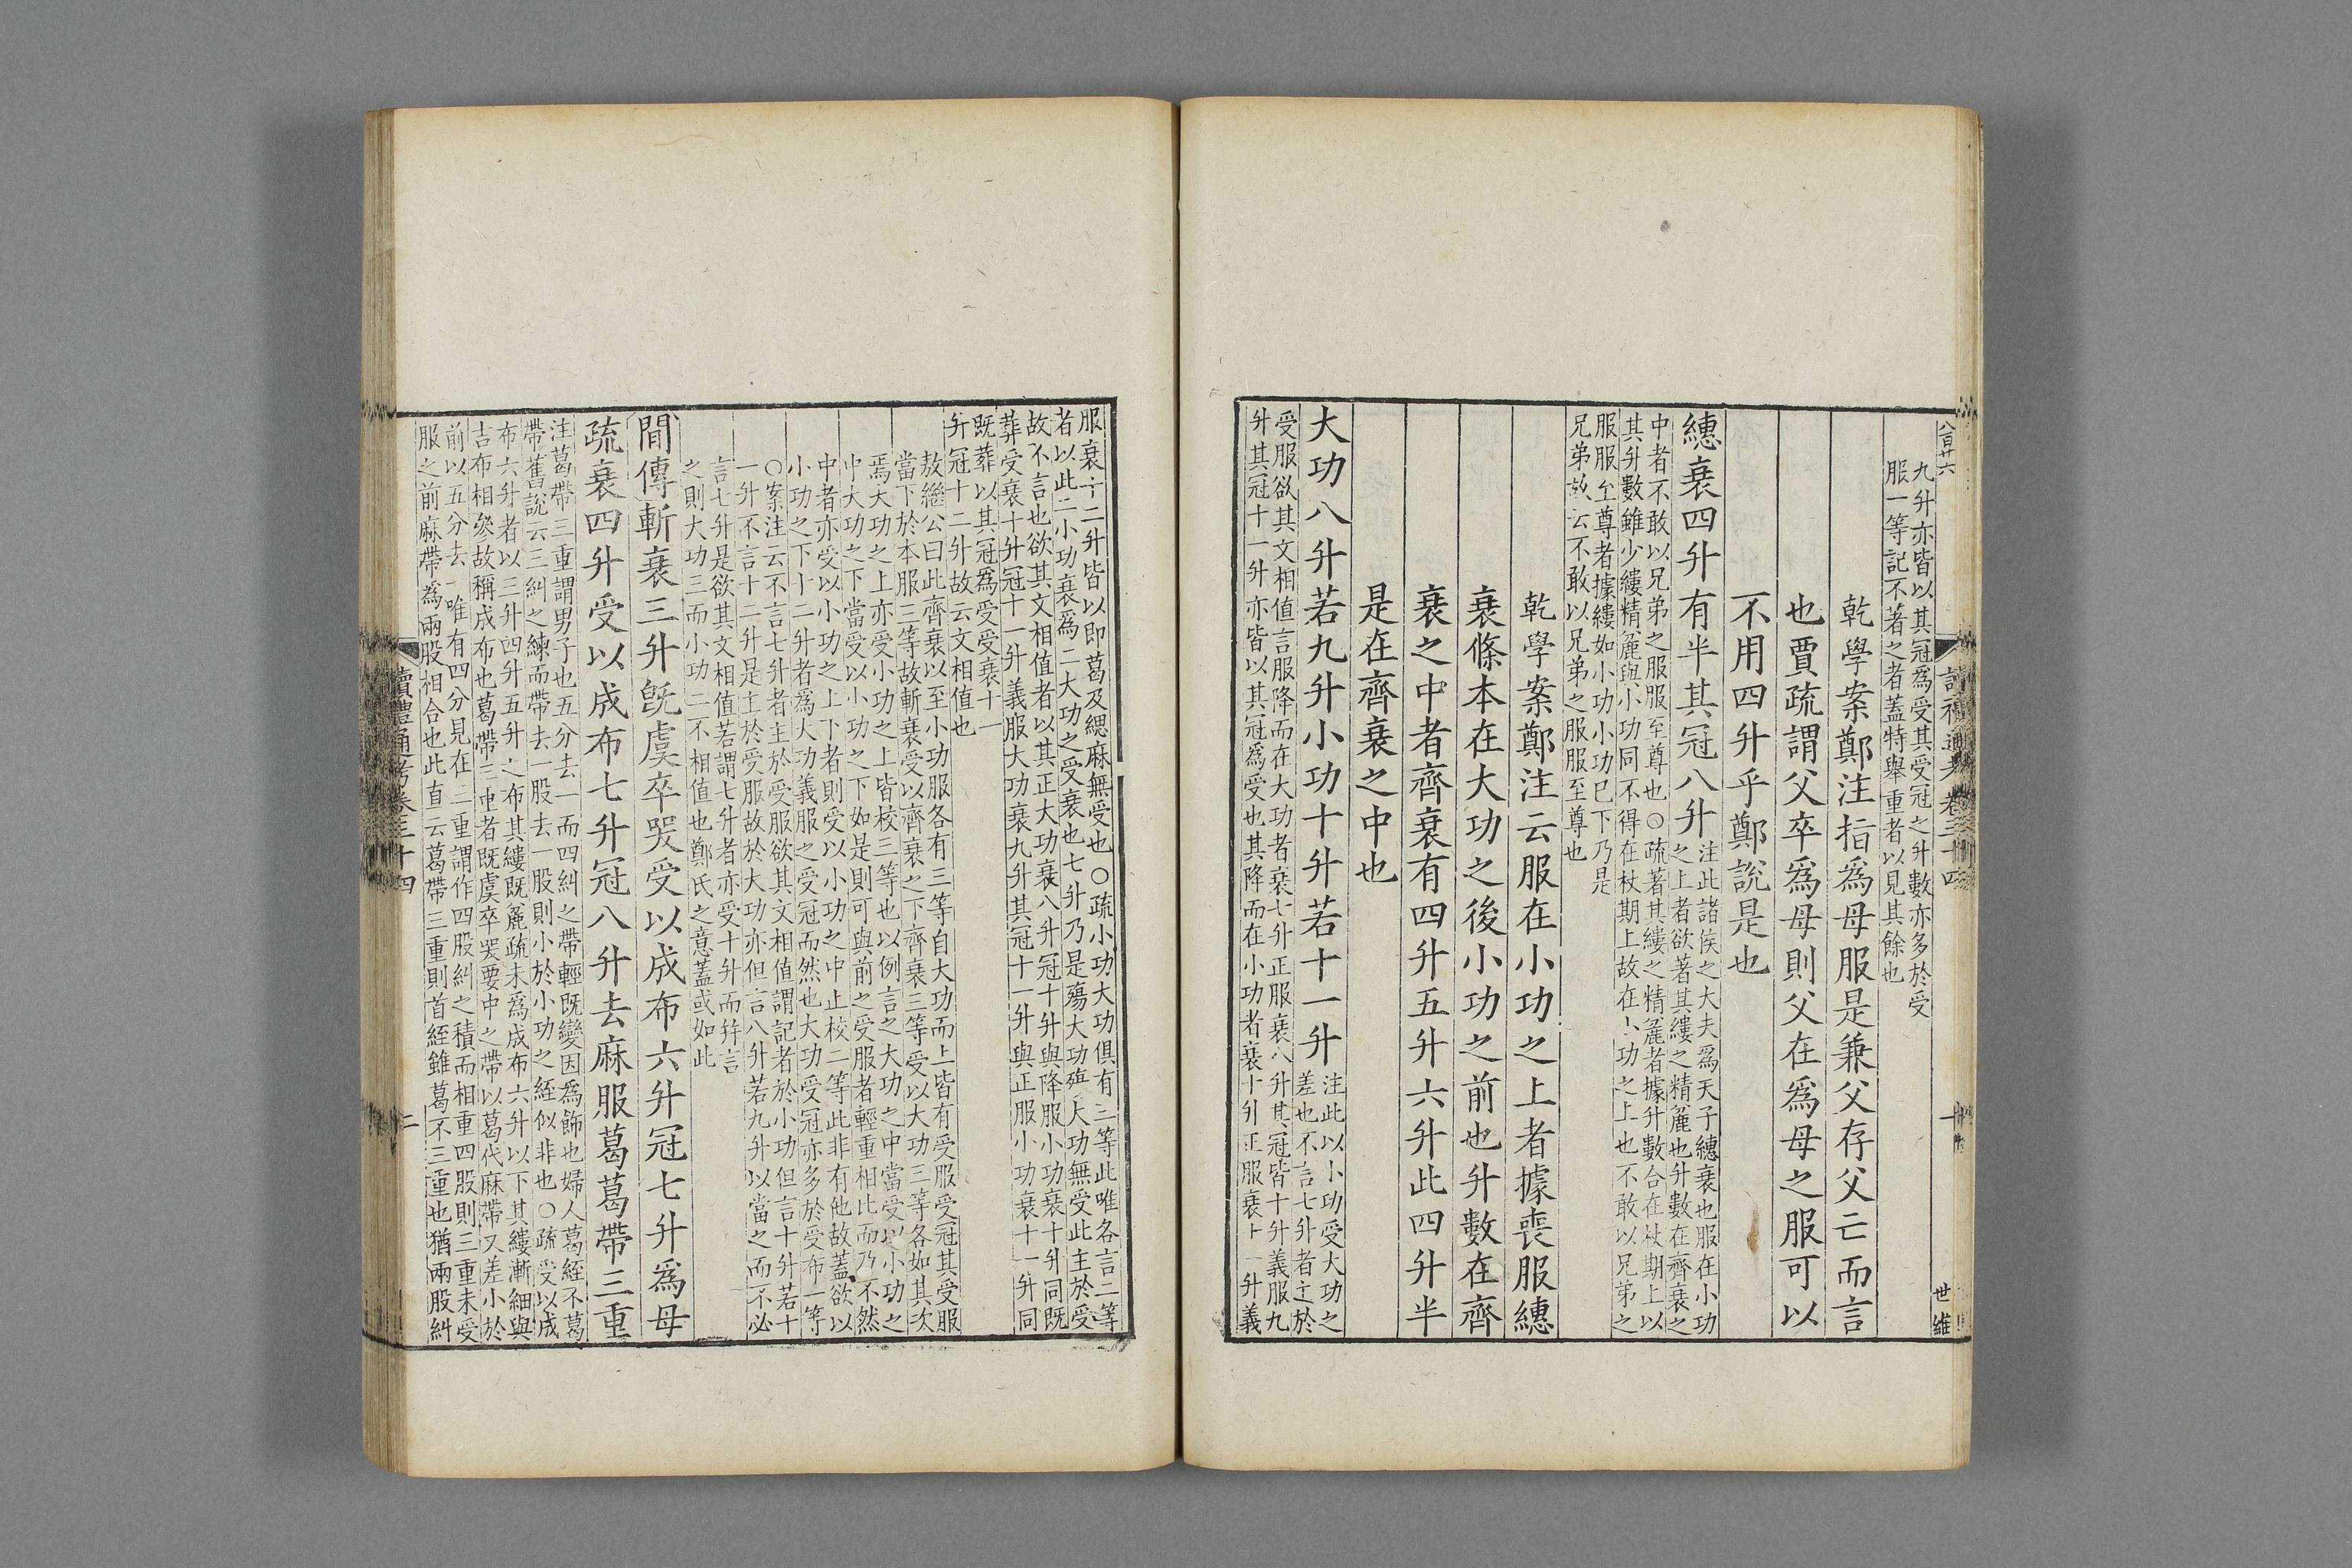 八百廿六
九升亦皆以其冠為受其受冠之升數亦多於受
服一等記不著之者蓋特舉重者以見其餘也
乾學案鄭注指爲母服是兼父存父亡而言
也賈疏謂父卒爲母則父在爲母之服可以
不用四升乎鄭說是也
繐衰四升有半其冠八升
注此諸侯之大夫爲天子繐衰也服在小功
之上者欲著其縷之精麤也升數在齊衰之
中者不敢以兄弟之服服至尊也○疏著其縷之精麤者據升數合在杖期上以
其升數雖少縷精麤與小功同不得在杖期上故在小功之上也不敢以兄弟之
服服至尊者據縷如小功小功已下乃是
兄弟故云不敢以兄弟之服服至尊也
乾學案鄭注云服在小功之上者據喪服繐
衰條本在大功之後小功之前也升數在齊
衰之中者齊衰有四升五升六升此四升半
是在齊衰之中也
大功八升若九升小功十升若十一升
注此以小功受大功之
差也不言七升者主於
受服欲其文相值言服降而在大功者衰七升正服衰八升其冠皆十升義服九
升其冠十一升亦皆以其冠爲受也其降而在小功者衰十升正服衰十一升義
世維
服衰十二升皆以即葛及緦麻無受也○疏小功大功俱有三等此唯各言二等
者以此二小功衰爲二大功之受衰也七升乃是殤大功殤大功無受此主於受
故不言也欲其文相值者以其正大功衰八升冠十升與降服小功衰十升同既
葬受衰十升冠十一升義服大功衰九升其冠十一升與正服小功衰十一升同
既葬以其冠爲受受衰十一
升冠十二升故云文相值也
敖繼公曰此齊衰以至小功服各有三等自大功而上皆有受服受冠其受服
當下於本服三等故斬衰受以齊衰之下齊衰三等受以大功三等各如其次
焉大功之上亦受小功之上皆校三等也以例言之大功之中當受以小功之
中大功之下當受以小功之下如是則可與前之受服者輕重相比而乃不然
中者亦受以小功之上下者則受以小功之中止校二等此非有他故蓋欲以
小功之下十二升者爲大功義服之受冠而然也大功受冠亦多於受布一等
○案注云不言七升者主於受服欲其文相值謂記者於小功但言十升若十
一升不言十二升是主於受服故於大功亦但言八升若九升以當之而不必
言七升是欲其文相值若謂七升者亦受十升而并言
之則大功三而小功二不相值也鄭氏之意蓋或如此
閒傳斬衰三升旣虞卒哭受以成布六升冠七升爲母
疏衰四升受以成布七升冠八升去麻服葛葛帶三重
注葛帶三重謂男子也五分去一而四糾之帶輕既變因爲飾也婦人葛絰不葛
帶舊說云三糾之練而帶去一股去一股則小於小功之絰似非也○疏受以成
布六升者以三升四升五升之布其縷既麤疏未爲成布六升以下其縷漸細與
吉布相參故稱成布也葛帶三重者既虞卒哭要中之帶以葛代麻帶又差小於
前以五分去一唯有四分見在三重謂作四股糾之積而相重四股則三重未受
服之前麻帶爲兩股相合也此直云葛帶三重則首絰雖葛不三重也猶兩股糾
讀禮通考卷三十四
二